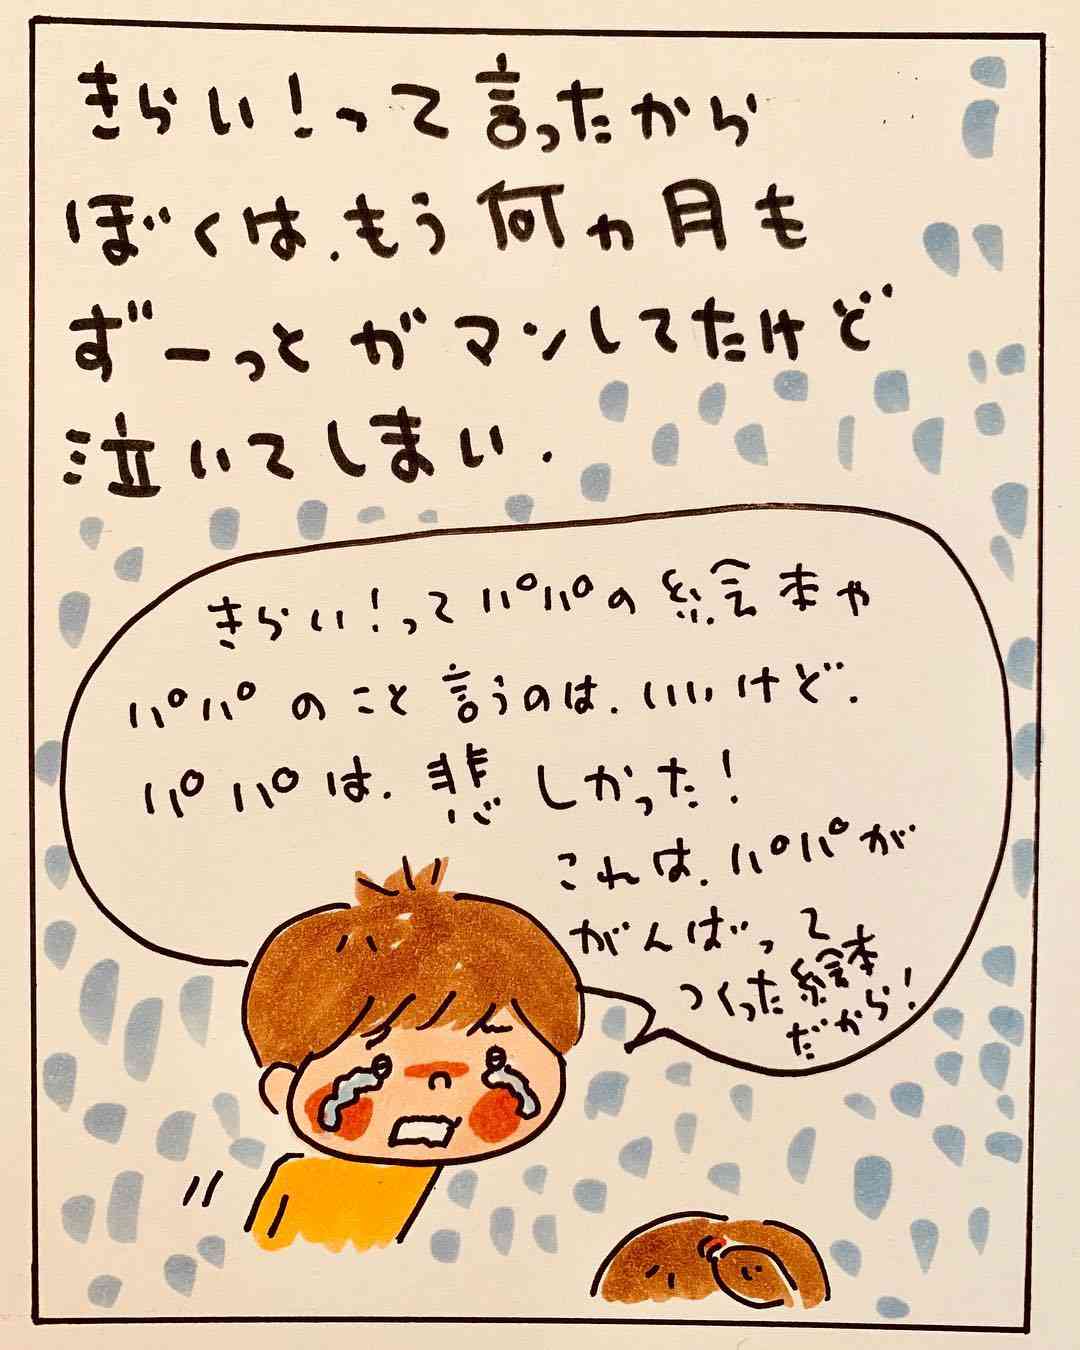 きらい！って言ったから
ぼくは、もう何ヵ月も
ずーっとガマンしてたけど
泣いてしまい、
きらい！ってパパの絵本や
パパのこと言うのは、いいけど、
パパは、悲しかった！
これは、パパが
がんばって
つくった絵本
だから！